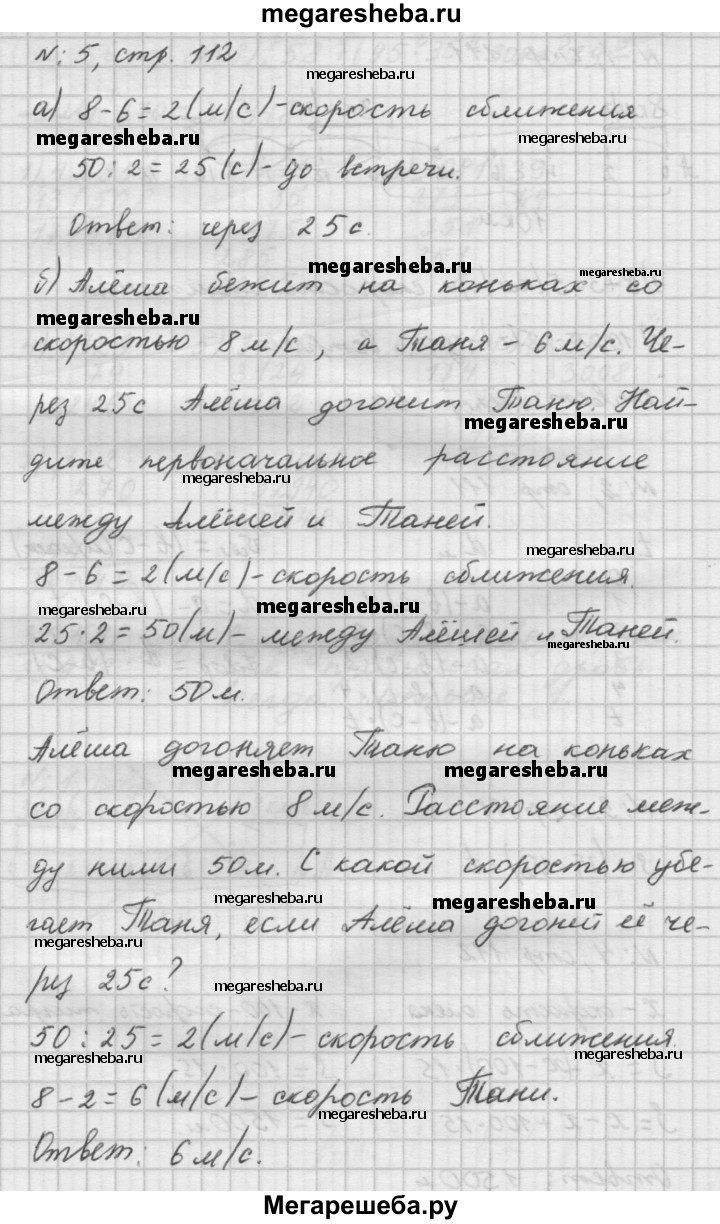 megaresheba.ru
№: 5, стр. 112
megaresheba.ru
а) 8-6=2(м/с)-скорость сближения
megaresheba.ru megaresheba.ru
50:2=25(с)-до встречи.
Ответ: через 25с.
megaresheba.ru megaresheba.ru
б) Алёша бежит на коньках со
megaresheba.ru
скоростью 8м/с, а Таня - 6м/с. Че-
рез 25с Алёша догонит Таню. Най-
megaresheba.ru
дите первоначальное расстояние
megaresheba.ru
между Алёшей и Таней.
megaresheba.ru
8-6=2(м/с)-скорость сближения.
megaresheba.ru megaresheba.ru
25·2=50(м)-между Алёшей и Таней.
megaresheba.ru
Ответ: 50м.
Алёша догоняет Таню на коньках
megaresheba.ru megaresheba.ru
со скоростью 8м/с. Расстояние меж-
ду ними 50м. С какой скоростью убе-
megaresheba.ru megaresheba.ru
гает Таня, если Алёша догоней её че-
megaresheba.ru
рез 25с?
megaresheba.ru
50:25=2(м/с)-скорость сближения.
megaresheba.ru megaresheba.ru
8-2=6(м/с)-скорость Тани.
megaresheba.ru
Ответ: 6м/с.
Мегарешеба.ру